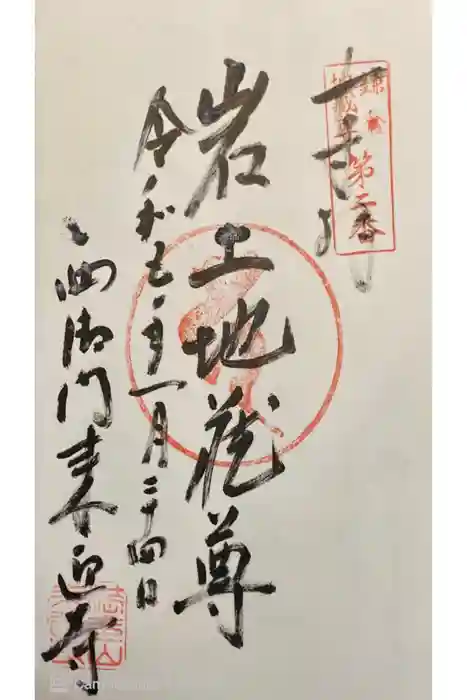 鎌倉
地蔵尊
第二番
岩上地蔵尊
令和七年一月二十四日
西御門来迎寺